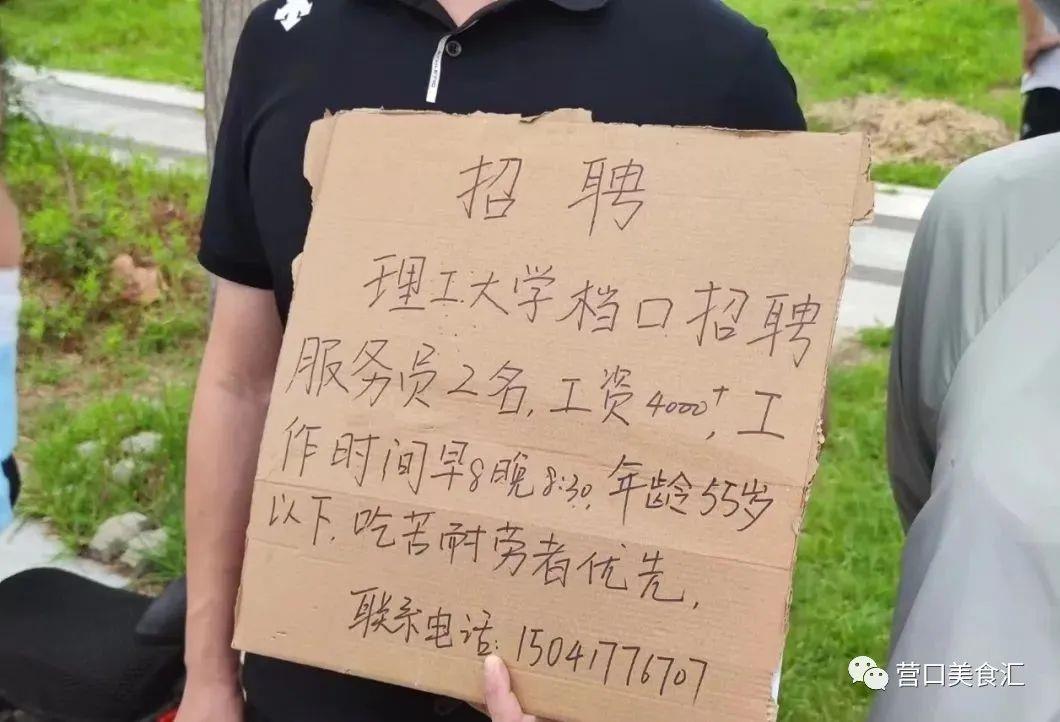 招聘
理工大学档口招聘
服务员2名,工资4000+,工
作时间早8晚8:30,年龄55岁
以下,吃苦耐劳者优先,
联系电话:15041776707
营口美食汇